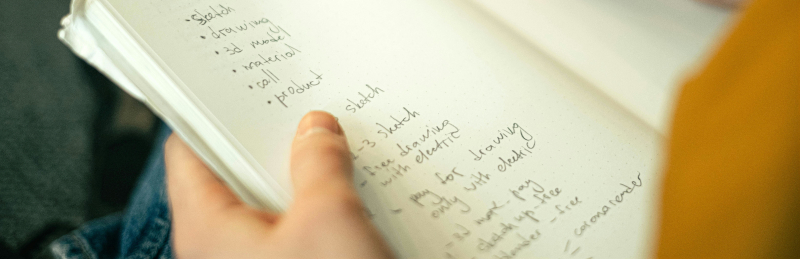 • sketch
• drawing
• 3d model
• material
• call
• product
sketch
-3 sketch
- free drawing
with electric
- pay for drawing
only with electric
- 3d more pay
- sketch up-free
-free
= coronarender